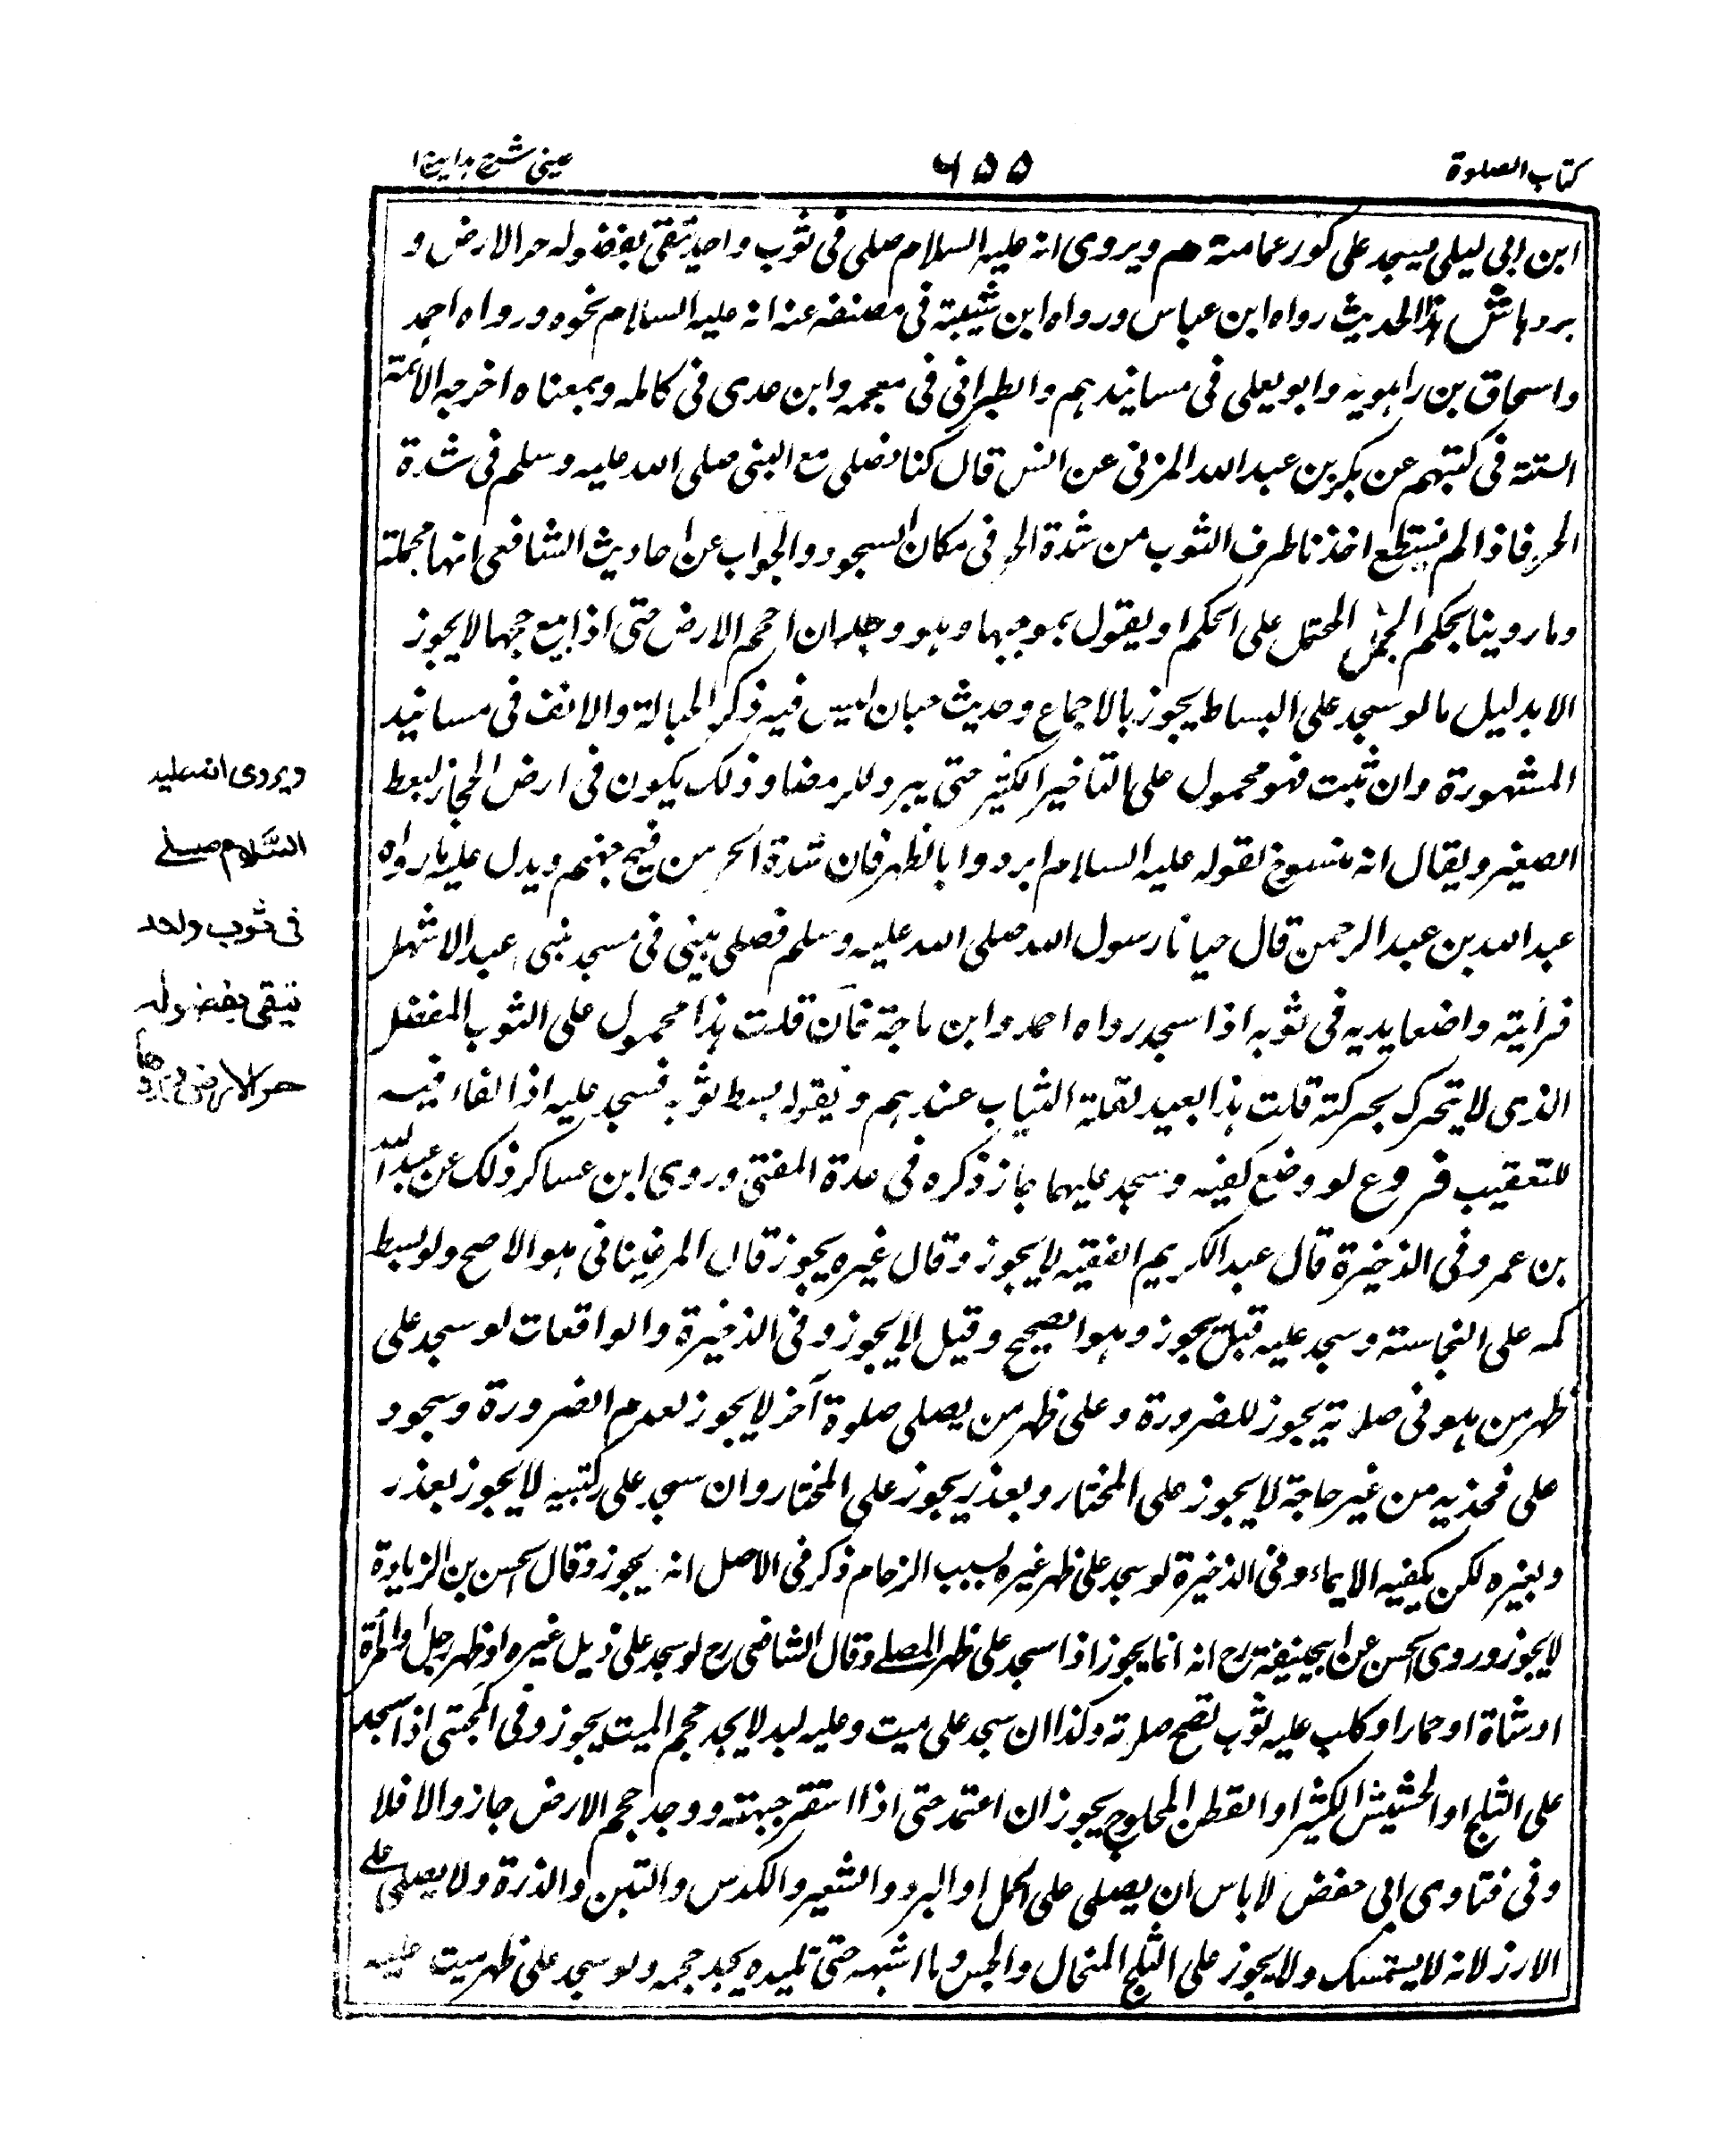 كتاب الصلوة
٦٥٥
عينى شرح هداية ج ١
ابن ابى ليلى يسجد على كور عمامته هم ويروى انه عليه السلام صلى فى ثوب واحد يتقى بفضوله حر الارض و
بردها ش هذا الحديث رواه ابن عباس ورواه ابن شيبة فى مصنفه عنه انه عليه السلام نحوه ورواه احمد
واسحاق بن راهويه وابو يعلى فى مسانيدهم والطبرانى فى معجمه وابن عدى فى كامله وبمعناه اخرجه الائمة
الستة فى كتبهم عن بكر بن عبد الله المزنى عن انس قال كنا نصلى مع النبى صلى الله عليه وسلم فى شدة
الحر فاذا لم نستطع اخذنا طرف الثوب من شدة الحر فى مكان السجود والجواب عن احاديث الشافعى انها مجملة
وما روينا بحكم المجمل المحتمل على الحكم او يقول بموجبها وهو وجدان احجم الارض حتى اذا مع جهها لا يجوز
الا بدليل ما لو سجد على البساط يجوز بالاجماع وحديث حبان ليس فيه ذكر الجبالة والانف فى مسانيد
المشهورة وان ثبت فهو محمول على التاخير الكثير حتى يبرد للرمضا وذلك يكون فى ارض الحجاز لبعط
الصغير ويقال انه منسوخ لقوله عليه السلام ابردوا بالظهر فان شدة الحر من فيح جهنم ويدل عليه ما رواه
عبد الله بن عبد الرحمن قال حيانا رسول الله صلى الله عليه وسلم فصلى بينى فى مسجد بنى عبد الاشهل
فرأيته واضعا يديه فى ثوبه اذا سجد رواه احمد وابن ماجة فان قلت هذا محمول على الثوب المنفضل
الذى لا يتحرك بحركته قلت هذا بعيد لقلة الثياب عندهم ونقوله بسط ثوبه فسجد عليه اذا الفاء فيه
للتعقيب فروع لو وضع كفيه وسجد عليهما جاز ذكره فى عدة المفتى وروى ابن عساكر ذلك عن عبد الله
بن عمر وفى الذخيرة قال عبد الكريم الفقيه لا يجوز وقال غيره يجوز قال المرغينانى هو الاصح ولو بسط
كمه على النجاسته وسجد عليه قيل يجوز وهو الصحيح وقيل لا يجوز وفى الذخيرة والواقعات لو سجد على
ظهر من هو فى صلاته يجوز للضرورة وعلى ظهر من يصلى صلوة آخر لا يجوز لعدم الضرورة وسجود
على فخذيه من غير حاجة لا يجوز على المختار وبعذر يجوز على المختار وان سجد على ركبتيه لا يجوز بعذر
وبغيره لكن يكفيه الايماء وفى الذخيرة لو سجد على ظهر غيره بسبب الزحام ذكر فى الاصل انه يجوز وقال الحسن بن الزيادة
لا يجوز وروى الحسن عن ابيحنيفة رح انه انما يجوز اذا سجد على ظهر المصلى وقال الشافعى رح لو سجد على ذيل غيره او ظهر رجل او امرأة
او شاة او حمار او كلب عليه ثوب تصح صلاته وكذا ان سجد على ميت وعليه لبد لا يجد حجم الميت يجوز وفى المجتبى اذا سجد
على الثلج او الحشيش الكثير او القطن المحلوج يجوز ان اعتمد حتى اذا استقر جبهته ووجد حجم الارض جاز والا فلا
وفى فتاوى ابى حفض لا باس ان يصلى على الجمل او البر والشعير والكدس والتبن والذرة ولا يصلى على
الارز لانه لا يستمسك ولا يجوز على الثلج المنحال والحبس وما اشبهه حتى تلبده يجد حجمه ولو سجد على ظهر ميت عليه
ويروى انه عليه
السلام صلى
فى ثوب واحد
يتقى بفضوله
حر الارض وبردها